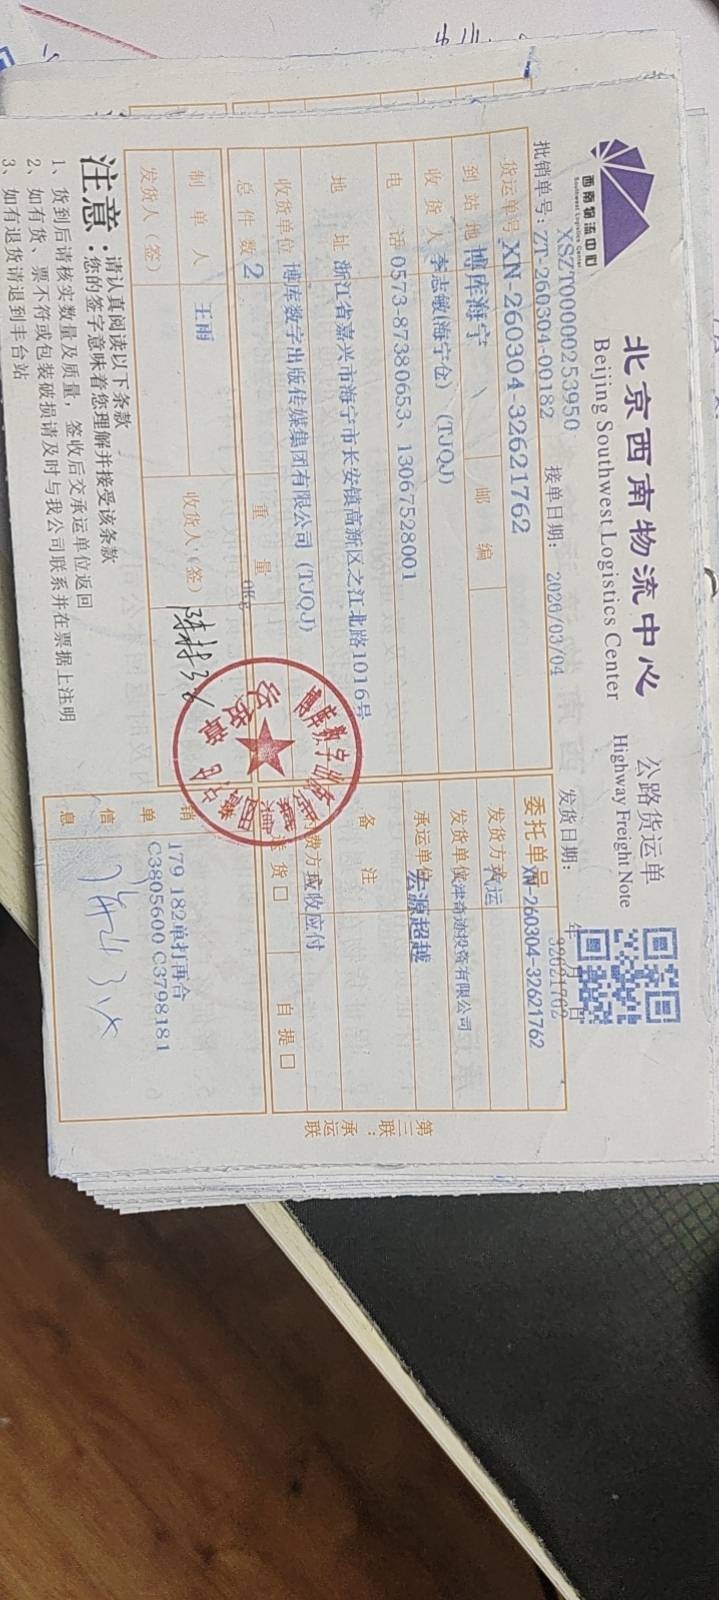 西南物流中心
Southwest Logistics Center
北京西南物流中心
Beijing Southwest Logistics Center
公路货运单
Highway Freight Note
XSZT00000253950
批销单号：ZT-260304-00182
接单日期：2026/03/04
发货日期： 年 月 日
32621762
货运单号 XN-260304-32621762
委托单号 XN-260304-32621762
到站地 博库海宁
邮编
发货方式 汽运
收货人 李志敏(海宁仓) (TJQJ)
发货单位
投资有限公司
电话 0573-87380653、13067528001
承运单位 宏源超越
地址 浙江省嘉兴市海宁市长安镇高新区之江北路1016号
备注
收货单位 博库数字出版传媒集团有限公司 (TJQJ)
付费方式 应收应付
总件数 2
重量 0Kg
送货□
自提□
制单人 王雨
收货人（签）
发货人（签）
销单信息
179 182单打再合
C3805600 C3798181
第三联：承运联
注意：
请认真阅读以下条款
您的签字意味着您理解并接受该条款
1、货到后请核实数量及质量，签收后交承运单位返回
2、如有货、票不符或包装破损请及时与我公司联系并在票据上注明
3、如有退货请退到丰台站